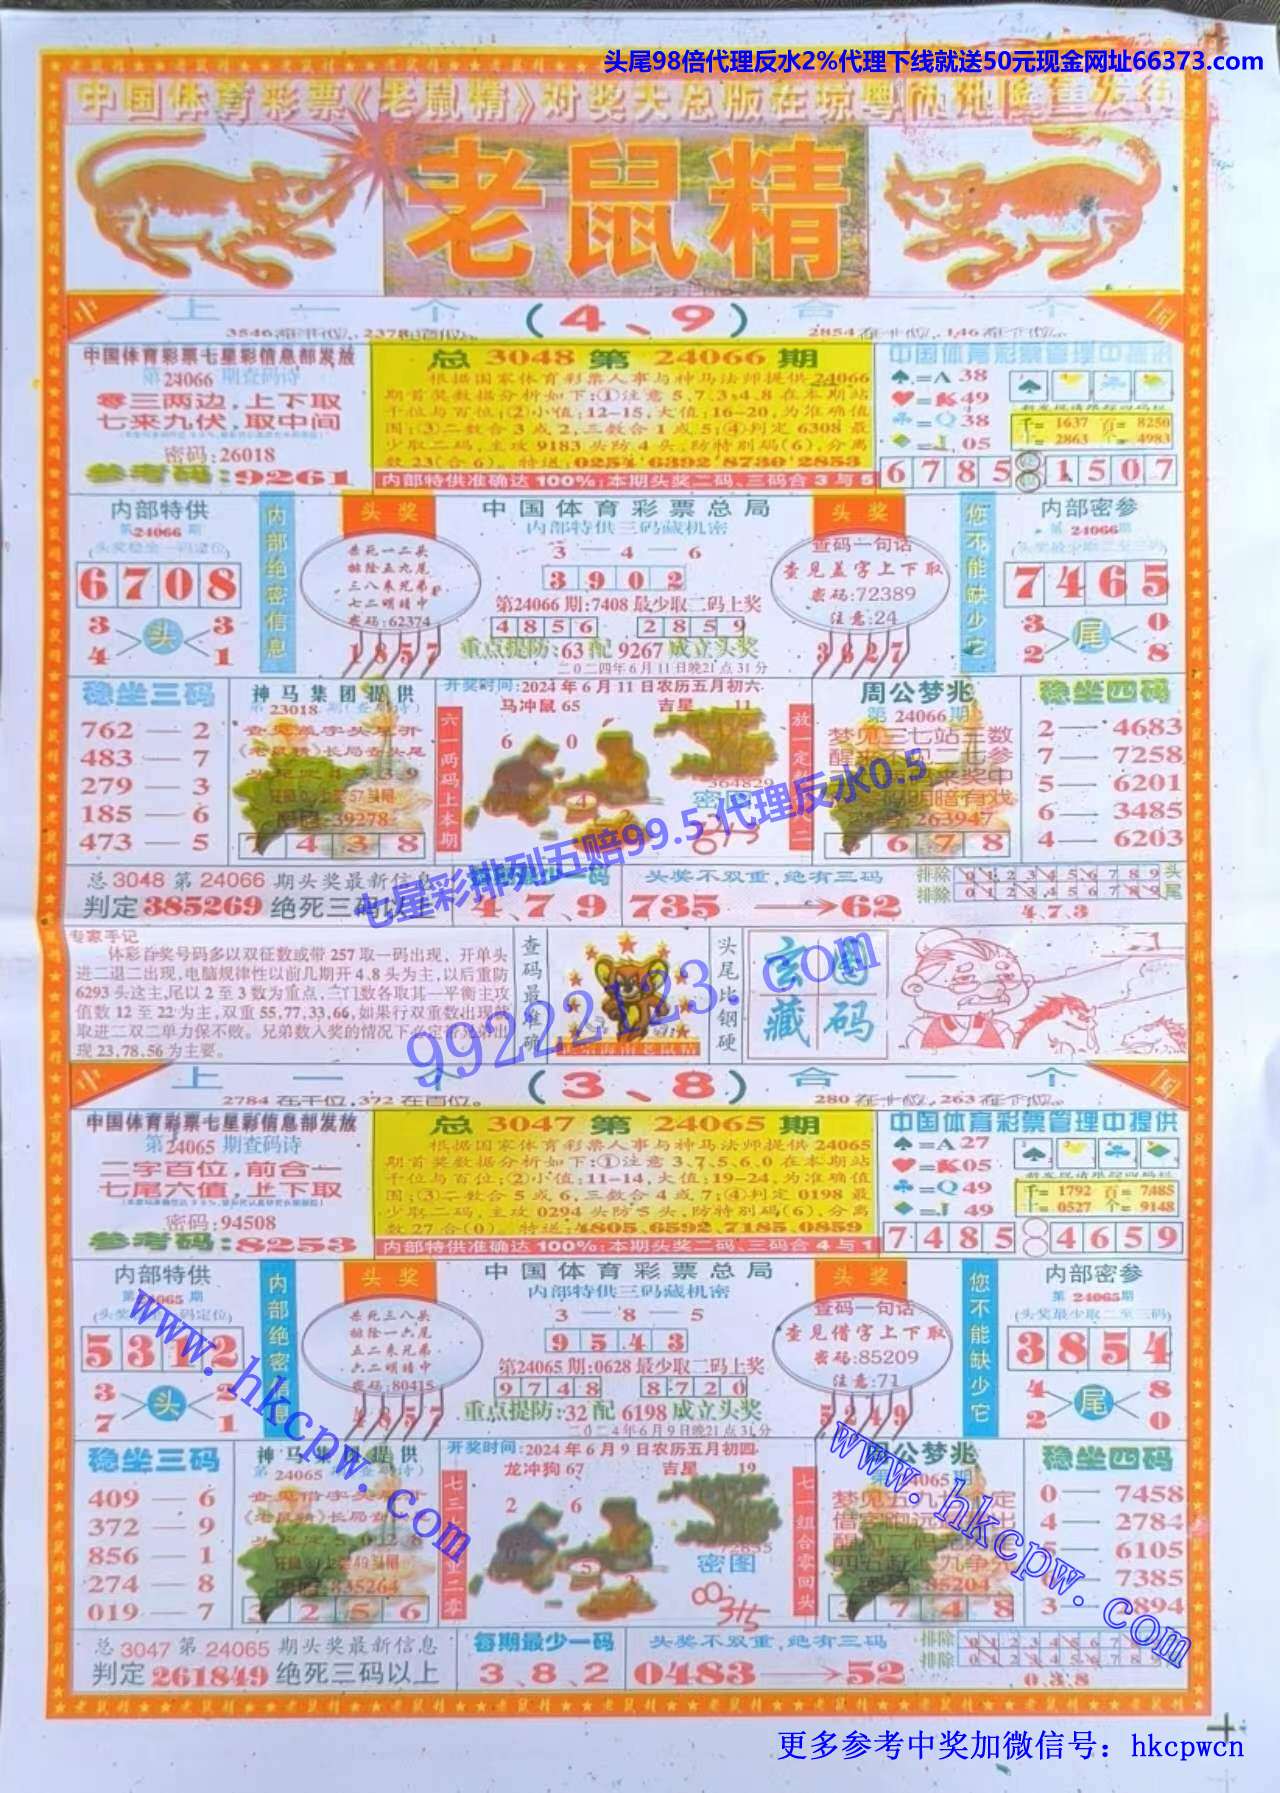 头尾98倍代理反水2%代理下线就送50元现金网址66373.com
中国体育彩票《老鼠精》对奖大总版在琼粤两地隆重发行
老鼠精
中 上一个 (4、9) 合一个 国
3546在千位，2378在百位。 2854在十位，146在个位。
中国体育彩票七星彩信息部发放
第24066期查码诗
零三两边，上下取
七来九伏，取中间
密码:26018
参考码:9261
总3048第24066期
根据国家体育彩票人事与神马法师提供24066
期首奖数据分析如下:①注意5.7.3.4.8在本期站
千位与百位;②小值:12-15,大值:16-20,为准确值
围;③二数合3或2,三数合1或5;④判定6308最
少取二码,主攻9183头防4头,防特别码(6),分离
数23(合6)。特送:0254 6392 8730 2853
内部特供准确达100%:本期头奖二码、三码合3与5
中国体育彩票管理中提供
♠=A 38
♥=K 49
♣=Q 38
♦=J 05
千= 1637 百= 8250
十= 2863 个= 4983
6785 1507
内部特供
第24066期
6708
3 3
头
4 1
内部绝密信息
头奖
杀死一二头
排除五九尾
三八来兄弟
七二明暗中
密码:62374
1857
中国体育彩票总局
内部特供三码藏机密
3—4—6
3902
第24066期:7408最少取二码上奖
4856 2859
重点提防:63配9267成立头奖
二○二四年6月11日晚21点31分
头奖
查码一句话
查见盖字上下取
密码:72389
注意:24
3627
您不能缺少它
内部密参
第24066期
7465
3 0
尾
2 8
稳坐三码
762—2
483—7
279—3
185—6
473—5
神马集团提供
第23018期
39278
7438
六一两码上本期
开奖时间:2024年6月11日农历五月初六
马冲鼠65 吉星11
6 0
4
364829
密图
周公梦兆
第24066期
梦见三七站三数
263947
678
稳坐四码
2—4683
7—7258
5—6201
6—3485
4—6203
总3048第24066期头奖最新信息
判定385269绝死三码以上
4、7、9
头奖不双重，绝有三码
735→62
排除 0123456789 头
排除 0123456789 尾
4.7.3
七星彩排列五赔99.5 代理反水0.5
99222123.com
专家手记
体彩首奖号码多以双征数或带257取一码出现，开单头
进二退二出现,电脑规律性以前几期开4.8头为主,以后重防
6293头这主,尾以2至3数为重点,三门数各取其一平衡主攻
值数12至22为主,双重55,77,33,66,如果行双重数出现
取进二双二单力保不败。兄弟数入奖的情况下必定
现23,78,56为主要。
查码最准确
头尾比钢硬
玄图藏码
中 上一个 (3、8) 合一个 国
2784在千位，372在百位。 280在十位，263在个位。
中国体育彩票七星彩信息部发放
第24065期查码诗
二字百位，前合一
七尾六值，上下取
密码:94508
参考码:8253
总3047第24065期
根据国家体育彩票人事与神马法师提供24065
期首奖数据分析如下:①注意3.7.5.6.0在本期站
千位与百位;②小值:11-14,大值:19-24,为准确值
围;③二数合5或6,三数合4或7;④判定0198最
少取二码,主攻0294头防5头,防特别码(6),分离
数27合(0)。特送:4805.6592.7185.0859
内部特供准确达100%:本期头奖二码、三码合4与1
中国体育彩票管理中提供
♠=A 27
♥=K 05
♣=Q 49
♦=J 49
千= 1792 百= 7485
十= 0527 个= 9148
7485 4659
内部特供
第24065期
5312
3 2
头
7 1
内部绝密信息
头奖
杀死三八头
排除一六尾
五二来兄弟
六二明暗中
密码:80415
4857
中国体育彩票总局
内部特供三码藏机密
3—8—5
9543
第24065期:0628最少取二码上奖
9748 8720
重点提防:32配6198成立头奖
二○二4年6月9日晚21点31分
头奖
查码一句话
查见借字上下取
密码:85209
注意:71
5249
您不能缺少它
内部密参
第24065期
(头奖最少取二至三码)
3854
4 8
尾
2 0
稳坐三码
409—6
372—9
856—1
274—8
019—7
神马集团提供
第24065期
335264
3256
开奖时间:2024年6月9日农历五月初四
龙冲狗67 吉星19
2 6
5
72855
密图
七一组合零回头
周公梦兆
第24065期
85204
748
稳坐四码
0—7458
4—2784
5—6105
7385
3—2894
总3047第24065期头奖最新信息
判定261849绝死三码以上
每期最少一码
3、8、2
头奖不双重，绝有三码
0483→52
排除 0123456789
排除 0123456789
0.3.8
www.hkcpw.com
www.hkcpw.com
更多参考中奖加微信号：hkcpwcn